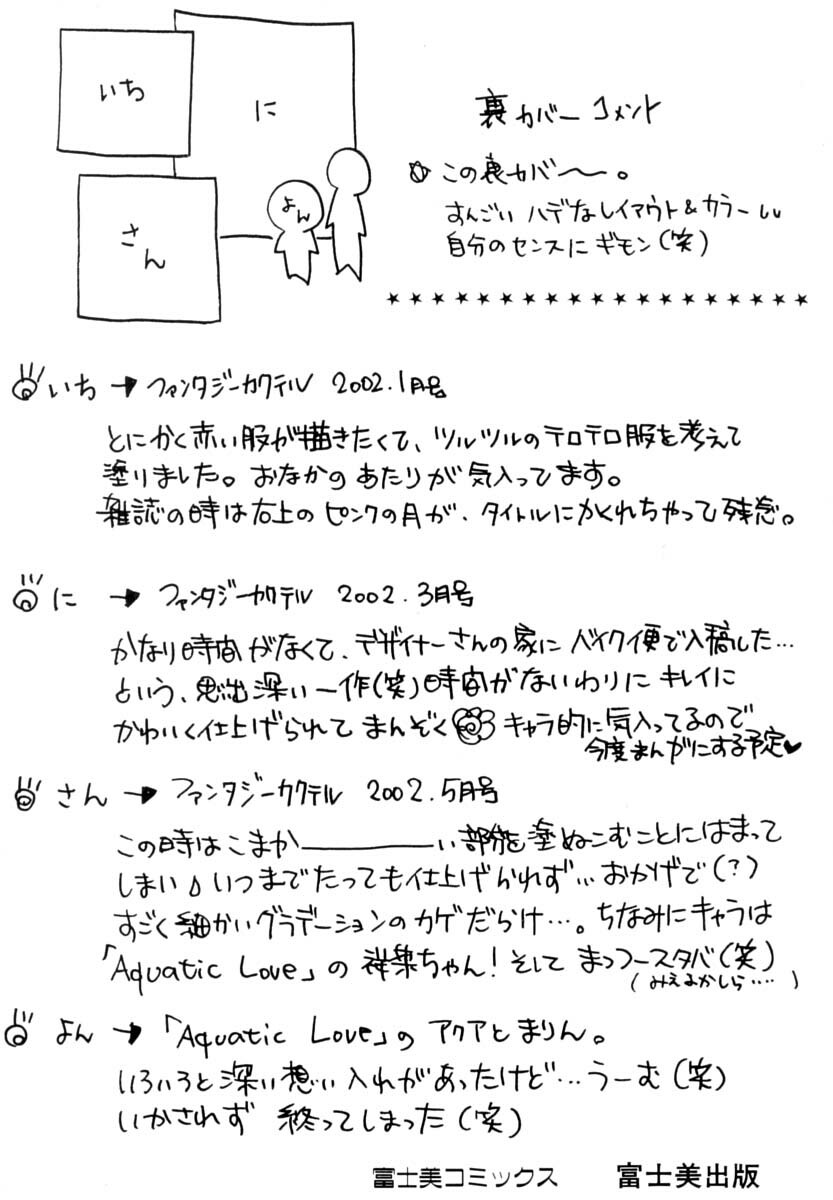 いち
に
さん
よん
裏カバーコメント
この裏カバ〜。
すんごいハデなレイアウト&カラーしい
自分のセンスにギモン(笑)
★★★★★★★★★★★★★★★★★★★
いち → ファンタジーカクテル 2002.1月号
とにかく赤い服が描きたくて、ツルツルのテロテロ服を考えて
塗りました。おなかのあたりが気入ってます。
雑誌の時は右上のピンクの月が、タイトルにかくれちゃって残念。
に → ファンタジーカクテル 2002.3月号
かなり時間がなくて、デザイナーさんの家にバイク便で入稿した…
という、思出深い一作(笑)時間がないわりにキレイに
かわいく仕上げられてまんぞく キャラ的に気入ってるので
今度まんがにする予定♥
さん → ファンタジーカクテル 2002.5月号
この時はこまか――――い部分を塗ぬこむことにはまって
しまい♪いつまでたっても仕上げられず…おかげで(?)
すごく細かいグラデーションのカゲだらけ…。ちなみにキャラは
「Aquatic Love」の ちゃん!そして まっフースタバ(笑)
(みえるかしら‥‥)
よん → 「Aquatic Love」のアクアとまりん。
いろいろと深い想い入れがあったけど…うーむ(笑)
いかされず 終ってしまった(笑)
富士美コミックス 富士美出版